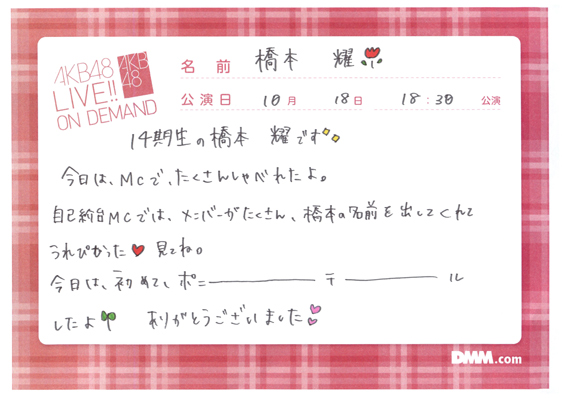 AKB48
LIVE!!
ON DEMAND
AKB
48
名前 橋本 耀
公演日 10月 18日 18:30 公演
14期生の橋本 耀です
今日は、MCで、たくさんしゃべれたよ。
自己紹介MCでは、メンバーがたくさん、橋本の名前を出してくれて
うれぴかった 見てね。
今日は、初めて、ポニ――――テ――――ル
したよ ありがとうございました
DMM.com